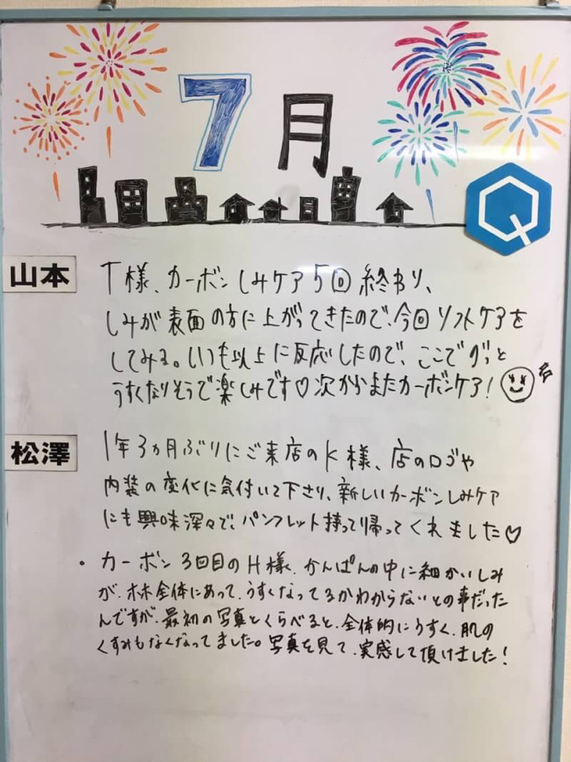 7月
Q
山本
T様、カーボンしみケア5回終わり、
しみが表面の方に上がってきたので、今回リフトケアを
してみる。いつも以上に反応したので、ここでグッと
うすくなりそうで楽しみです♡次からまたカーボンケア!
松澤
1年3ヵ月ぶりにご来店のK様、店のロゴや
内装の変化に気付いて下さり、新しいカーボンしみケア
にも興味深々で、パンフレット持って帰ってくれました♡
・カーボン3回目のH様、かんぱんの中に細かいしみ
が、ホホ全体にあって、うすくなってるかわからないとの事だった
んですが、最初の写真とくらべると、全体的にうすく、肌の
くすみもなくなってました。写真を見て、実感して頂けました!